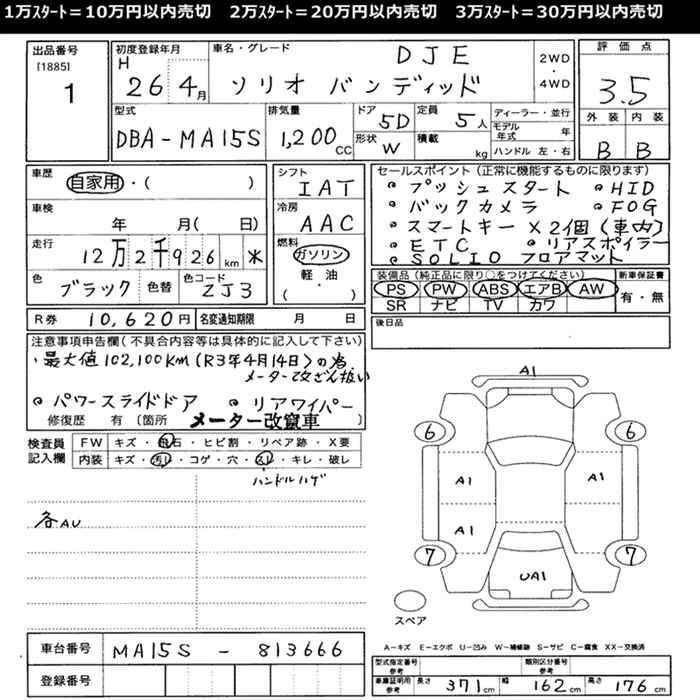 1万スタート＝10万円以内売切　2万スタート＝20万円以内売切　3万スタート＝30万円以内売切
出品番号
[1885]
1
初度登録年月
H
26年4月
車名・グレード
DJE
ソリオ バンディッド
2WD
・
4WD
評価点
3.5
外装 内装
B B
型式
DBA-MA15S
排気量
1,200cc
ドア
5D
形状
W
定員
5人
積載
kg
ディーラー・並行
モデル年式 年
ハンドル 左・右
車歴
自家用・( )
車検
年 月( 日)
走行
12万2千926km *
色
ブラック
色替
色コード
ZJ3
シフト
IAT
冷房
AAC
燃料
ガソリン
軽・油
・( )
セールスポイント(正常に機能するものに限ります)
・プッシュスタート ・HID
・バックカメラ ・FOG
・スマートキー×2個(車内)
・ETC ・リアスポイラー
・SOLIO フロアマット
装備品(純正品に限り○をつけてください)
PS PW ABS エアB AW
SR ナビ TV カワ
新車保証書
有・無
R券 10,620円 名変通知期限 月 日
後日品
注意事項申告欄(不具合内容等は具体的に記入して下さい)
・最大値102,100km(R3年4月14日)の為
メーター改ざん扱い
・パワースライドドア ・リアワイパー
修復歴 有 [箇所 メーター改竄車 ]
検査員
記入欄
FW キズ・飛石・ヒビ割・リペア跡・X要
内装 キズ・汚れ・コゲ・穴・スレ・キレ・破レ
ハンドルハゲ
各AU
A1
6 6
A1 A1
A1
7 7
UA1
スペア
車台番号 MA15S - 813666
登録番号
A－キズ E－エクボ U－凹み W－補修跡 S－サビ C－腐食 XX－交換済
型式指定番号
参考
類別区分番号
参考
車庫証明用
参考
長さ 371cm 幅 162cm 高さ 176cm